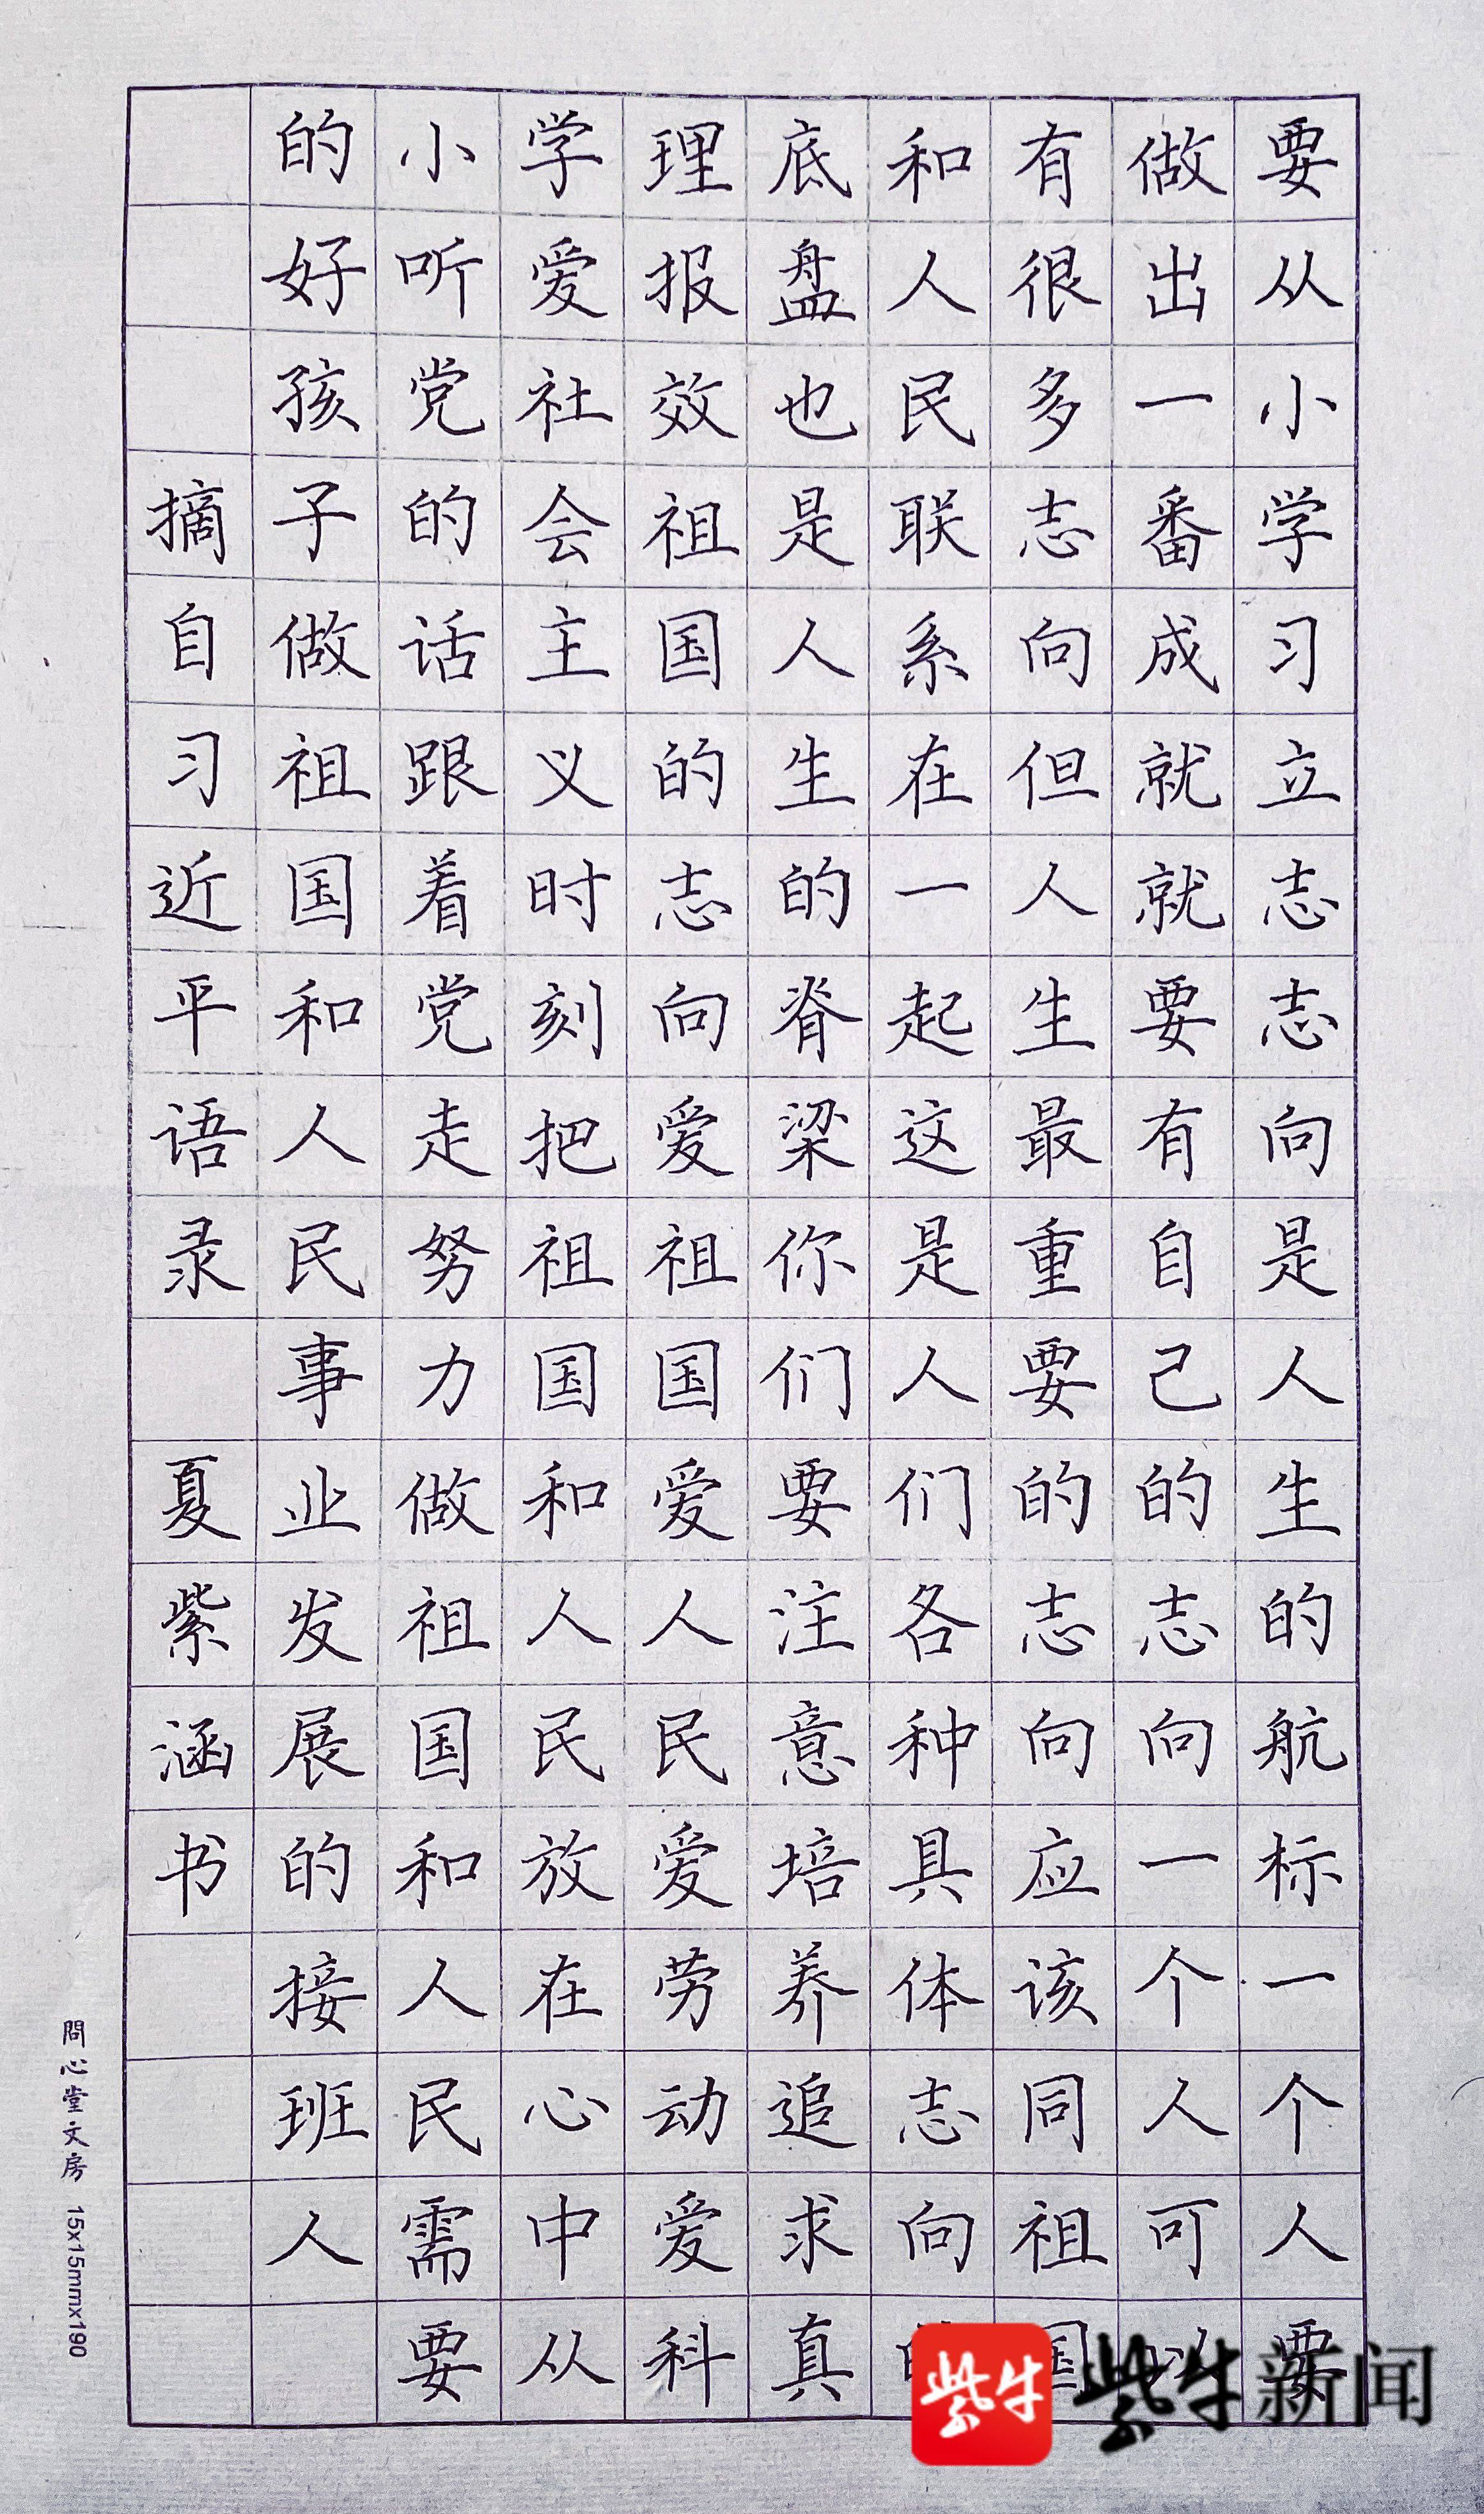 要从小学习立志志向是人生的航标一个人要
做出一番成就就要有自己的志向一个人可以
有很多志向但人生最重要的志向应该同祖国
和人民联系在一起这是人们各种具体志向的
底盘也是人生的脊梁你们要注意培养追求真
理报效祖国的志向爱祖国爱人民爱劳动爱科
学爱社会主义时刻把祖国和人民放在心中从
小听党的话跟着党走努力做祖国和人民需要
的好孩子做祖国和人民事业发展的接班人
摘自习近平语录 夏紫涵书
問心堂文房 15x15mmx190
紫牛
紫牛新闻